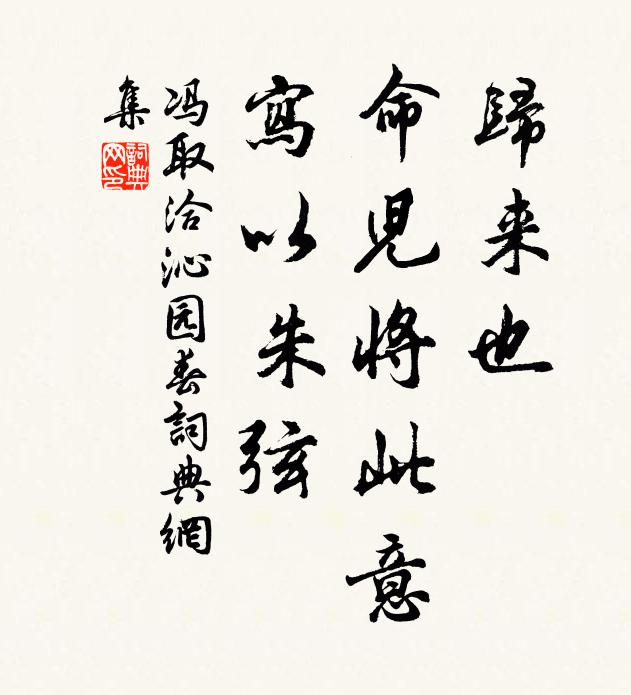 歸来也
命兒將此意
寫以朱弦
冯取洽沁园春詞典網
集
詞典网印